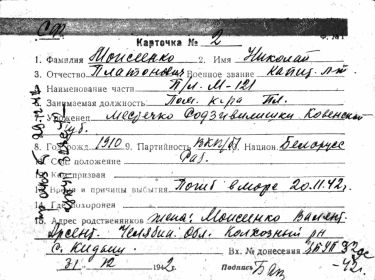 Сф
Карточка № 2
1. Фамилия Моисеенко 2. Имя Николай
3. Отчество Платонович Военное звание капит. л-т.
Наименование части П/л. М-121
Занимаемая должность Пом. к-ра Пл.
Уроженец местечко Ковенской
губ.
8. Год рожд. 1910 9. Партийность ВКП/б/ Национ. Белорус
Соц. положение Раб.
Кем призван
и причины выбытия Погиб в море 20.11.42г.
Где похоронен
15. Адрес родственников жена: Моисеенко Валент.
Арсент. Челябин. Обл. Колхозный рн
с. Кидыши Вх. № донесения
31 12 1942г. Подпись
-42г.